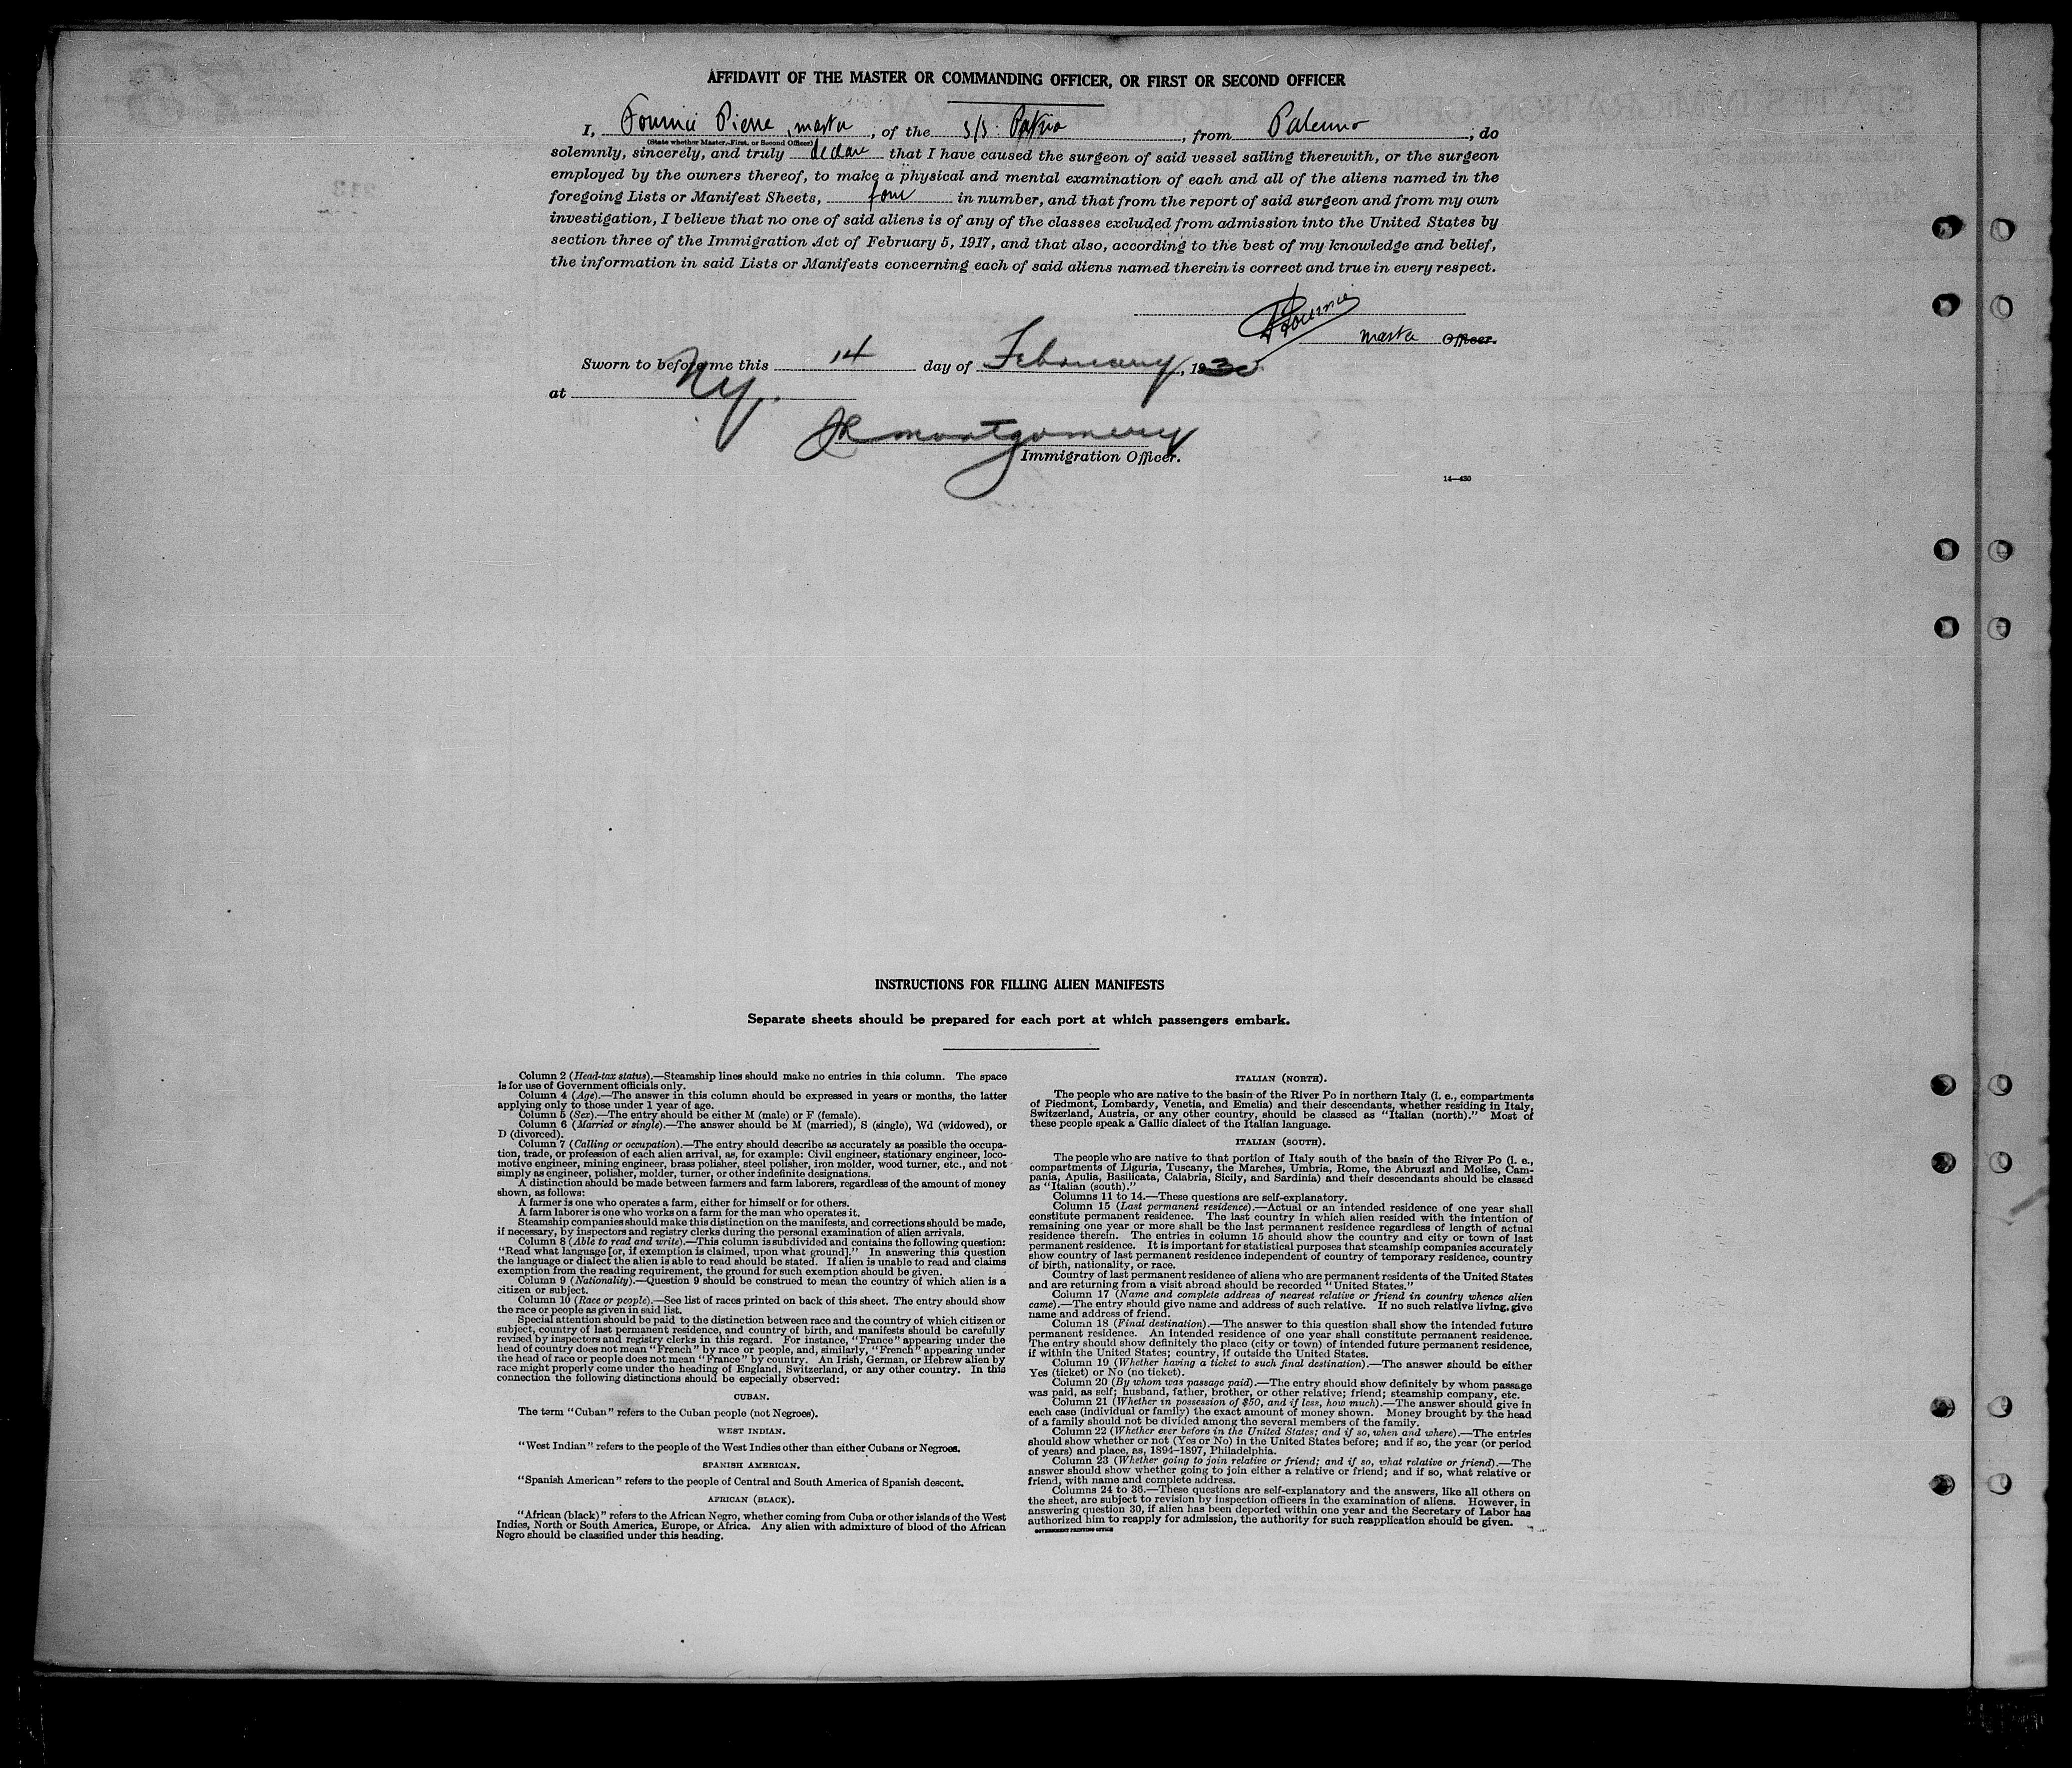 AFFIDAVIT OF THE MASTER OR COMMANDING OFFICER, OR FIRST OR SECOND OFFICER
I, Fournié Pierre, master, of the s/s: Patria, from Palermo, do
(State whether Master, First, or Second Officer)
solemnly, sincerely, and truly declare that I have caused the surgeon of said vessel sailing therewith, or the surgeon
employed by the owners thereof, to make a physical and mental examination of each and all of the aliens named in the
foregoing Lists or Manifest Sheets, four in number, and that from the report of said surgeon and from my own
investigation, I believe that no one of said aliens is of any of the classes excluded from admission into the United States by
section three of the Immigration Act of February 5, 1917, and that also, according to the best of my knowledge and belief,
the information in said Lists or Manifests concerning each of said aliens named therein is correct and true in every respect.
PFournié
master Officer.
Sworn to before me this 14 day of February, 1930
at NY.
JR Montgomery
Immigration Officer.
14—430
INSTRUCTIONS FOR FILLING ALIEN MANIFESTS
Separate sheets should be prepared for each port at which passengers embark.
Column 2 (Head-tax status).—Steamship lines should make no entries in this column. The space
is for use of Government officials only.
Column 4 (Age).—The answer in this column should be expressed in years or months, the latter
applying only to those under 1 year of age.
Column 5 (Sex).—The entry should be either M (male) or F (female).
Column 6 (Married or single).—The answer should be M (married), S (single), Wd (widowed), or
D (divorced).
Column 7 (Calling or occupation).—The entry should describe as accurately as possible the occupa-
tion, trade, or profession of each alien arrival, as, for example: Civil engineer, stationary engineer, loco-
motive engineer, mining engineer, brass polisher, steel polisher, iron molder, wood turner, etc., and not
simply as engineer, polisher, molder, turner, or other indefinite designations.
A distinction should be made between farmers and farm laborers, regardless of the amount of money
shown, as follows:
A farmer is one who operates a farm, either for himself or for others.
A farm laborer is one who works on a farm for the man who operates it.
Steamship companies should make this distinction on the manifests, and corrections should be made,
if necessary, by inspectors and registry clerks during the personal examination of alien arrivals.
Column 8 (Able to read and write).—This column is subdivided and contains the following question:
"Read what language [or, if exemption is claimed, upon what ground]." In answering this question
the language or dialect the alien is able to read should be stated. If alien is unable to read and claims
exemption from the reading requirement, the ground for such exemption should be given.
Column 9 (Nationality).—Question 9 should be construed to mean the country of which alien is a
citizen or subject.
Column 10 (Race or people).—See list of races printed on back of this sheet. The entry should show
the race or people as given in said list.
Special attention should be paid to the distinction between race and the country of which citizen or
subject, country of last permanent residence, and country of birth, and manifests should be carefully
revised by inspectors and registry clerks in this regard. For instance, "France" appearing under the
head of country does not mean "French" by race or people, and, similarly, "French" appearing under
the head of race or people does not mean "France" by country. An Irish, German, or Hebrew alien by
race might properly come under the heading of England, Switzerland, or any other country. In this
connection the following distinctions should be especially observed:
CUBAN.
The term "Cuban" refers to the Cuban people (not Negroes).
WEST INDIAN.
"West Indian" refers to the people of the West Indies other than either Cubans or Negroes.
SPANISH AMERICAN.
"Spanish American" refers to the people of Central and South America of Spanish descent.
AFRICAN (BLACK).
"African (black)" refers to the African Negro, whether coming from Cuba or other islands of the West
Indies, North or South America, Europe, or Africa. Any alien with admixture of blood of the African
Negro should be classified under this heading.
ITALIAN (NORTH).
The people who are native to the basin of the River Po in northern Italy (i. e., compartments
of Piedmont, Lombardy, Venetia, and Emelia) and their descendants, whether residing in Italy,
Switzerland, Austria, or any other country, should be classed as "Italian (north)." Most of
these people speak a Gallic dialect of the Italian language.
ITALIAN (SOUTH).
The people who are native to that portion of Italy south of the basin of the River Po (i. e.,
compartments of Liguria, Tuscany, the Marches, Umbria, Rome, the Abruzzi and Molise, Cam-
pania, Apulia, Basilicata, Calabria, Sicily, and Sardinia) and their descendants should be classed
as "Italian (south)."
Columns 11 to 14.—These questions are self-explanatory.
Column 15 (Last permanent residence).—Actual or an intended residence of one year shall
constitute permanent residence. The last country in which alien resided with the intention of
remaining one year or more shall be the last permanent residence regardless of length of actual
residence therein. The entries in column 15 should show the country and city or town of last
permanent residence. It is important for statistical purposes that steamship companies accurately
show country of last permanent residence independent of country of temporary residence, country
of birth, nationality, or race.
Country of last permanent residence of aliens who are permanent residents of the United States
and are returning from a visit abroad should be recorded "United States."
Column 17 (Name and complete address of nearest relative or friend in country whence alien
came).—The entry should give name and address of such relative. If no such relative living, give
name and address of friend.
Column 18 (Final destination).—The answer to this question shall show the intended future
permanent residence. An intended residence of one year shall constitute permanent residence.
The entry should show definitely the place (city or town) of intended future permanent residence,
if within the United States; country, if outside the United States.
Column 19 (Whether having a ticket to such final destination).—The answer should be either
Yes (ticket) or No (no ticket).
Column 20 (By whom was passage paid).—The entry should show definitely by whom passage
was paid, as self; husband, father, brother, or other relative; friend; steamship company, etc.
Column 21 (Whether in possession of $50, and if less, how much).—The answer should give in
each case (individual or family) the exact amount of money shown. Money brought by the head
of a family should not be divided among the several members of the family.
Column 22 (Whether ever before in the United States; and if so, when and where).—The entries
should show whether or not (Yes or No) in the United States before; and if so, the year (or period
of years) and place, as, 1894–1897, Philadelphia.
Column 23 (Whether going to join relative or friend; and if so, what relative or friend).—The
answer should show whether going to join either a relative or friend; and if so, what relative or
friend, with name and complete address.
Columns 24 to 36.—These questions are self-explanatory and the answers, like all others on
the sheet, are subject to revision by inspection officers in the examination of aliens. However, in
answering question 30, if alien has been deported within one year and the Secretary of Labor has
authorized him to reapply for admission, the authority for such reapplication should be given.
GOVERNMENT PRINTING OFFICE